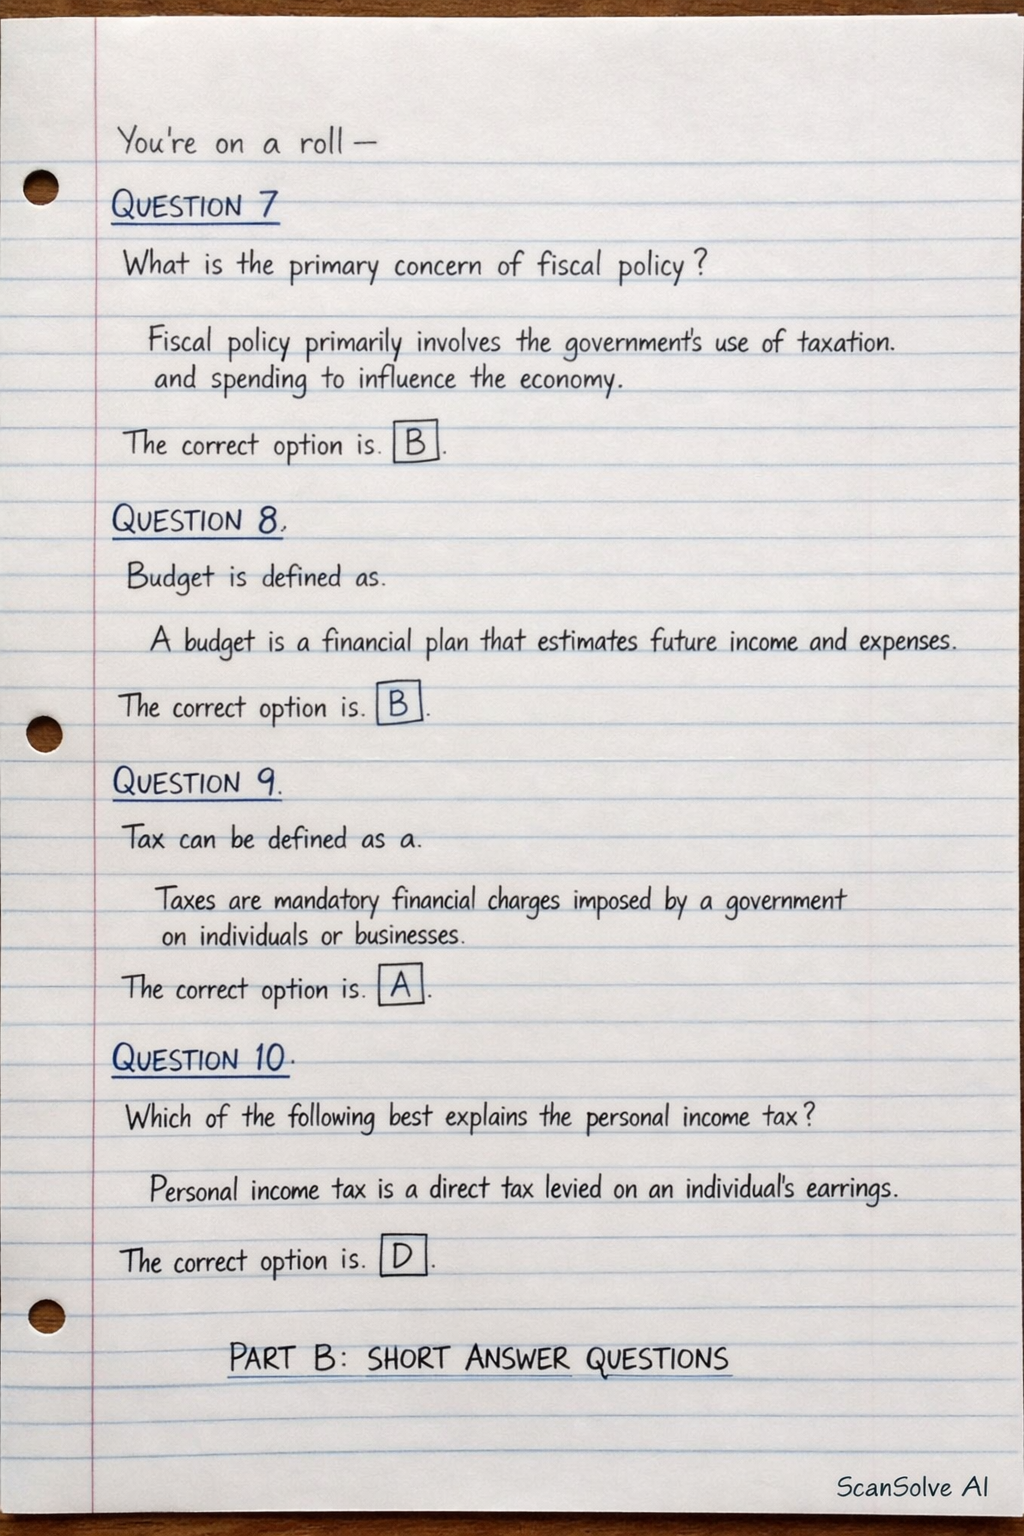 You're on a roll —
QUESTION 7
What is the primary concern of fiscal policy?
Fiscal policy primarily involves the government's use of taxation.
and spending to influence the economy.
The correct option is. B.
QUESTION 8.
Budget is defined as.
A budget is a financial plan that estimates future income and expenses.
The correct option is. B.
QUESTION 9.
Tax can be defined as a.
Taxes are mandatory financial charges imposed by a government
on individuals or businesses.
The correct option is. A.
QUESTION 10.
Which of the following best explains the personal income tax?
Personal income tax is a direct tax levied on an individual's earrings.
The correct option is. D.
PART B: SHORT ANSWER QUESTIONS
ScanSolve AI